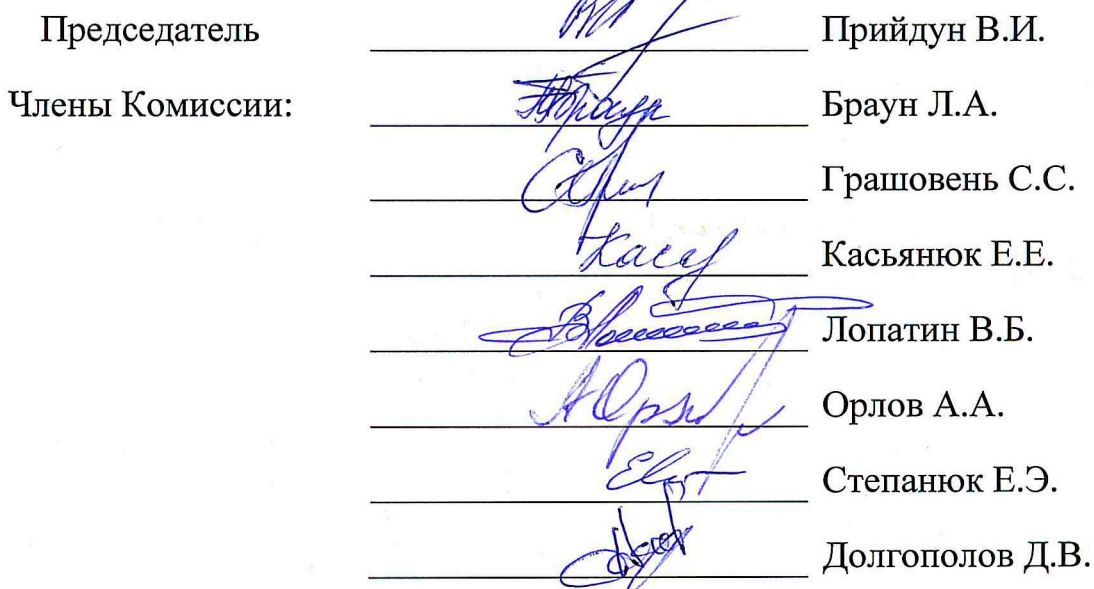 Председатель Прийдун В.И.
Члены Комиссии: Браун Л.А.
Грашовень С.С.
Касьянюк Е.Е.
Лопатин В.Б.
Орлов А.А.
Степанюк Е.Э.
Долгополов Д.В.